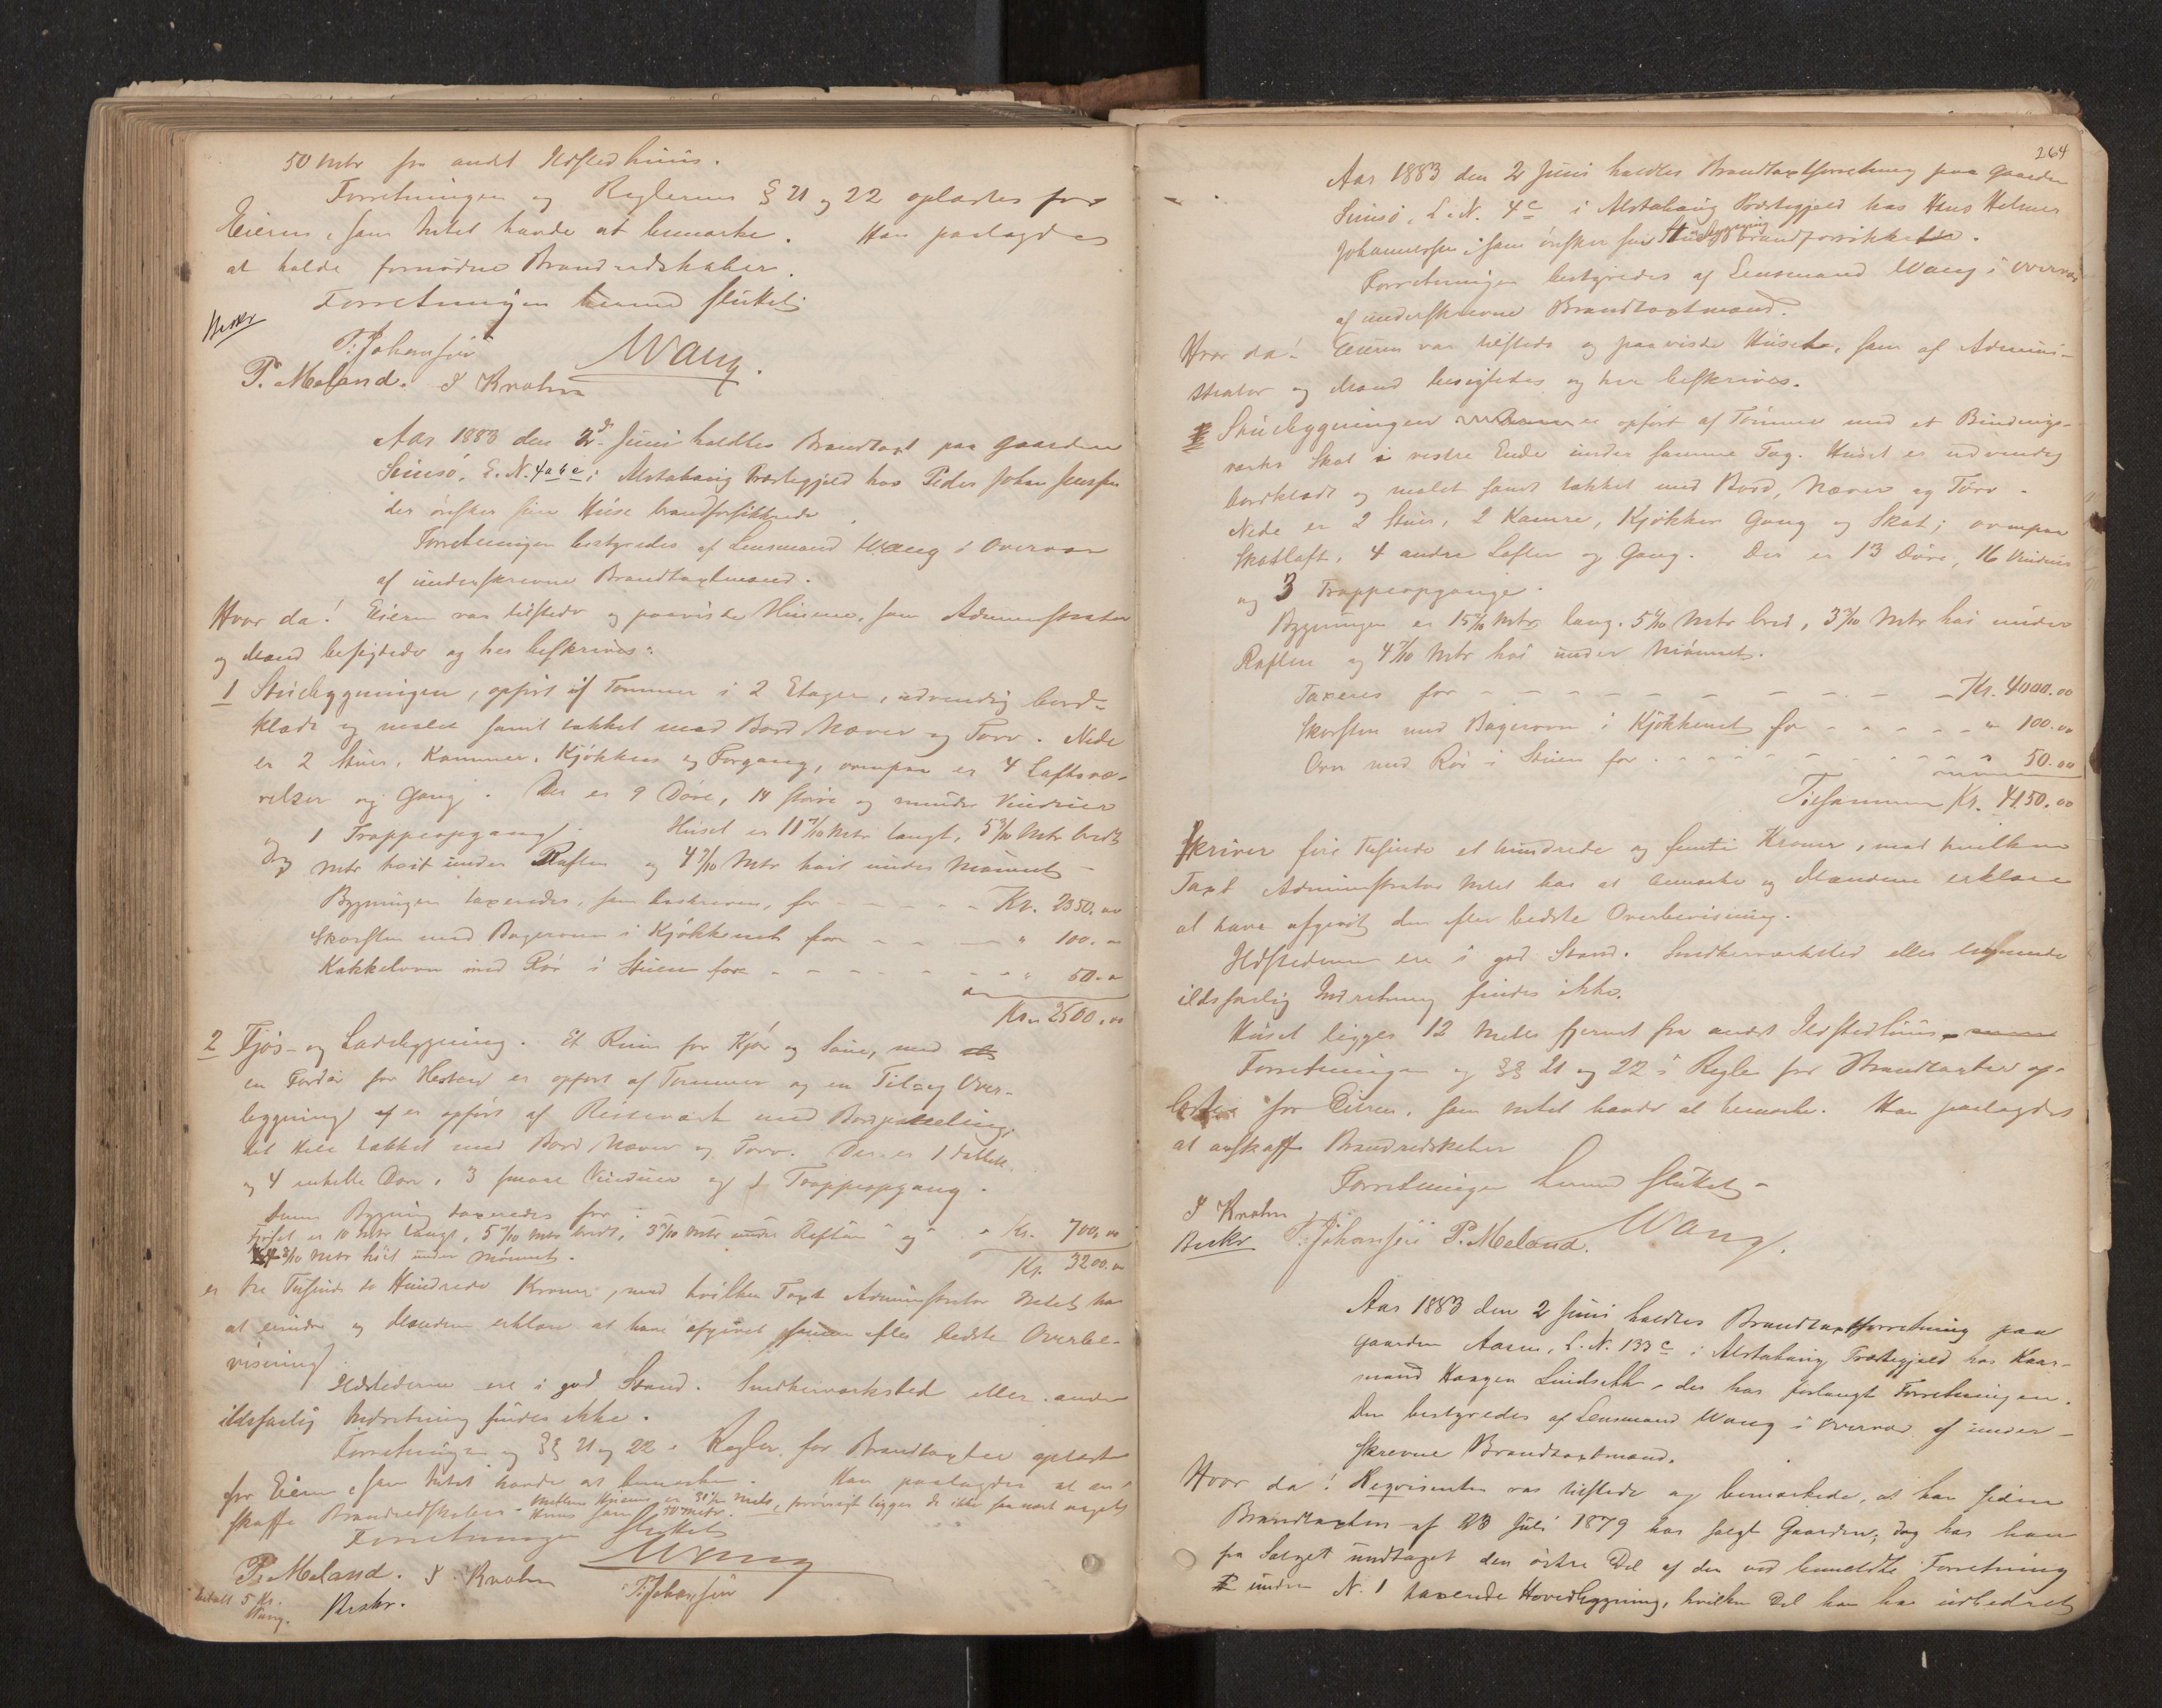 50 Mtr fra andet Ildstedhuus.
Forretningen og Reglernes § 21 og 22 oplæstes for
Eieren, som Intet havde at bemærke. Han paalagdes
at holde fornødne Brandredskaber.
Forretningen hermed sluttet
Beskr
T. Johansen Wang.
P. Meland. J Krohn
Aar 1883 den 2d Juni holdtes Brandtaxt paa Gaarden
Sinsö, L. N. 4 a b c i Alstahaug Præstegjeld hos Peder Johan Jenssen
der ønsker sine Huse brandforsikkrede
Forretningen bestyredes af Lensmand Wang i Overvær
af underskrevne Brandtaxtmænd.
Hvor da! Eieren var tilstede og paaviste Husene, som Administrator
og Mænd besigtede og her beskrives:
1 Stuebygningen, opført af Tømmer i 2 Etager, udvendig bord-
klædt og malet samt tækket med Bord Næver og Torv. Nede
er 2 Stuer, Kammer, Kjøkken og Forgang, ovenpaa er 4 Loftsvæ-
relser og Gang. Der er 9 Døre, 14 større og mindre Vinduer
og 1 Trappeopgang. Huset er 11 7/10 Mtr langt, 5 /10 Mtr bredt
Mtr høit under Raften og 4 9/10 Mtr høit under Mønnet
Bygningen taxeredes, som beskreven, for Kr. 2350.00
Skorsten med Bagerovn i Kjøkkenet for " 100.00
Kakkelovn med Rør i Stuen for " 50.00
Kr. 2500.00
2 Fjøs- og Ladebygning. Et Rum for Kjør og Saue, med
en Fordør for Hesten er opført af Tømmer og en Til og Over-
bygning er opført af Reisværk med Bordpaneling,
det Hele tækket med Bord Næver og Torv. Der er 1 dobbelt
og 4 enkelte Døre, 3 smaae Vinduer og 1 Trappeopgang.
Denne Bygning taxeredes for
Fjøset er 10 Mtr langt, 5 7/10 Mtr bredt, 3 /10 Mtr under Raften og Kr. 700,00
/10 Mtr høit under Mønnet. Kr. 3200.00
er tre Tusinde to Hundrede Kroner, mod hvilken Taxt Administrator Intet har
at erindre og Mændene erklære at have afgivet samme efter bedste Overbe-
visning.
Ildstederne ere i god Stand. Snedkerværksted eller anden
ildsfarlig Indretning findes ikke.
Forretningen og §§ 21 og 22 i Regler for Brandtaxter oplæstes
for Eieren, som Intet havde at bemærke. Han paalagdes at an-
skaffe Brandredskaber. Mellem Husene er 31 Mtr, forøvrigt ligger de ikke saa nært noget
Huus som 50 Metr.
Forretningen sluttet
P. Meland. J. Krohn Wang
T. Johansen
betalt 5 Kr.
Wang. Beskr.
264
Aar 1883 den 2 Juni holdtes Brandtaxtforretning paa Gaarden
Sinsö, L. N. 4 c i Alstahaug Præstegjeld hos Hans Helmer
Johannessen, som ønsker sin Stuebygning brandforsikkret.
Forretningen bestyredes af Lensmand Wang i Overvær
af underskrevne Brandtaxtmænd.
Hvor da! Eieren var tilstede og paaviste Huset, som af Admini-
strator og Mænd besigtedes og her beskrives.
Stuebygningen er opført af Tømmer med et Bindings-
værks Skot i vestre Ende under samme Tag. Huset er udvendig
bordklædt og malet samt tækket med Bord, Næver og Torv.
Nede er 2 Stuer, 2 Kamre, Kjøkken Gang og Skot; ovenpaa
Skotloft, 4 andre Lofter og Gang. Der er 13 Døre, 16 Vinduer
og 3 Trappeopgange.
Bygningen er 15 /10 Mtr lang. 5 /10 Mtr bred, 3 /10 Mtr høi under
Raften og 4 7/10 Mtr høi under Mønnet.
Taxeres for Kr. 4000.00
Skorsten med Bagerovn i Kjøkkenet for " 100.00
Ovn med Rør i Stuen for 50.00
Tilsammen Kr. 4150.00
Skriver fire Tusinde et hundrede og femti Kroner, mod hvilken
Taxt Administrator Intet har at bemærke og Mændene erklære
at have afgivet den efter bedste Overbevisning.
Ildstederne ere i god Stand. Snedkerværksted eller lignende
ildsfarlig Indretning findes ikke.
Huset ligger 12 Meter fjernet fra andet Ildstedhuus.
Forretningen og §§ 21 og 22 i Regler for Brandtaxter op-
læstes for Eieren, som Intet havde at bemærke. Han paalagdes
at anskaffe Brandredskaber
Forretningen hermed sluttet
J Krohn T. Johansen P. Meland. Wang.
Beskr
Aar 1883 den 2 Juni holdtes Brandtaxtforretning paa
Gaarden Aasen, L. N. 133 c i Alstahaug Præstegjeld hos Kaar-
mand Haagen Lindseth, der har forlangt Forretningen.
Den bestyredes af Lensmand Wang i Overvær af under-
skrevne Brandtaxtmænd.
Hvor da! Reqvirenten var tilstede og bemærkede, at han siden
Brandtaxten af 23 Juli 1879 har solgt Gaarden; dog har han
fra Salget undtaget den østre Del af den ved bemeldte Forretning
under N. 1 taxerede Hovedbygning, hvilken Del han har udbedret